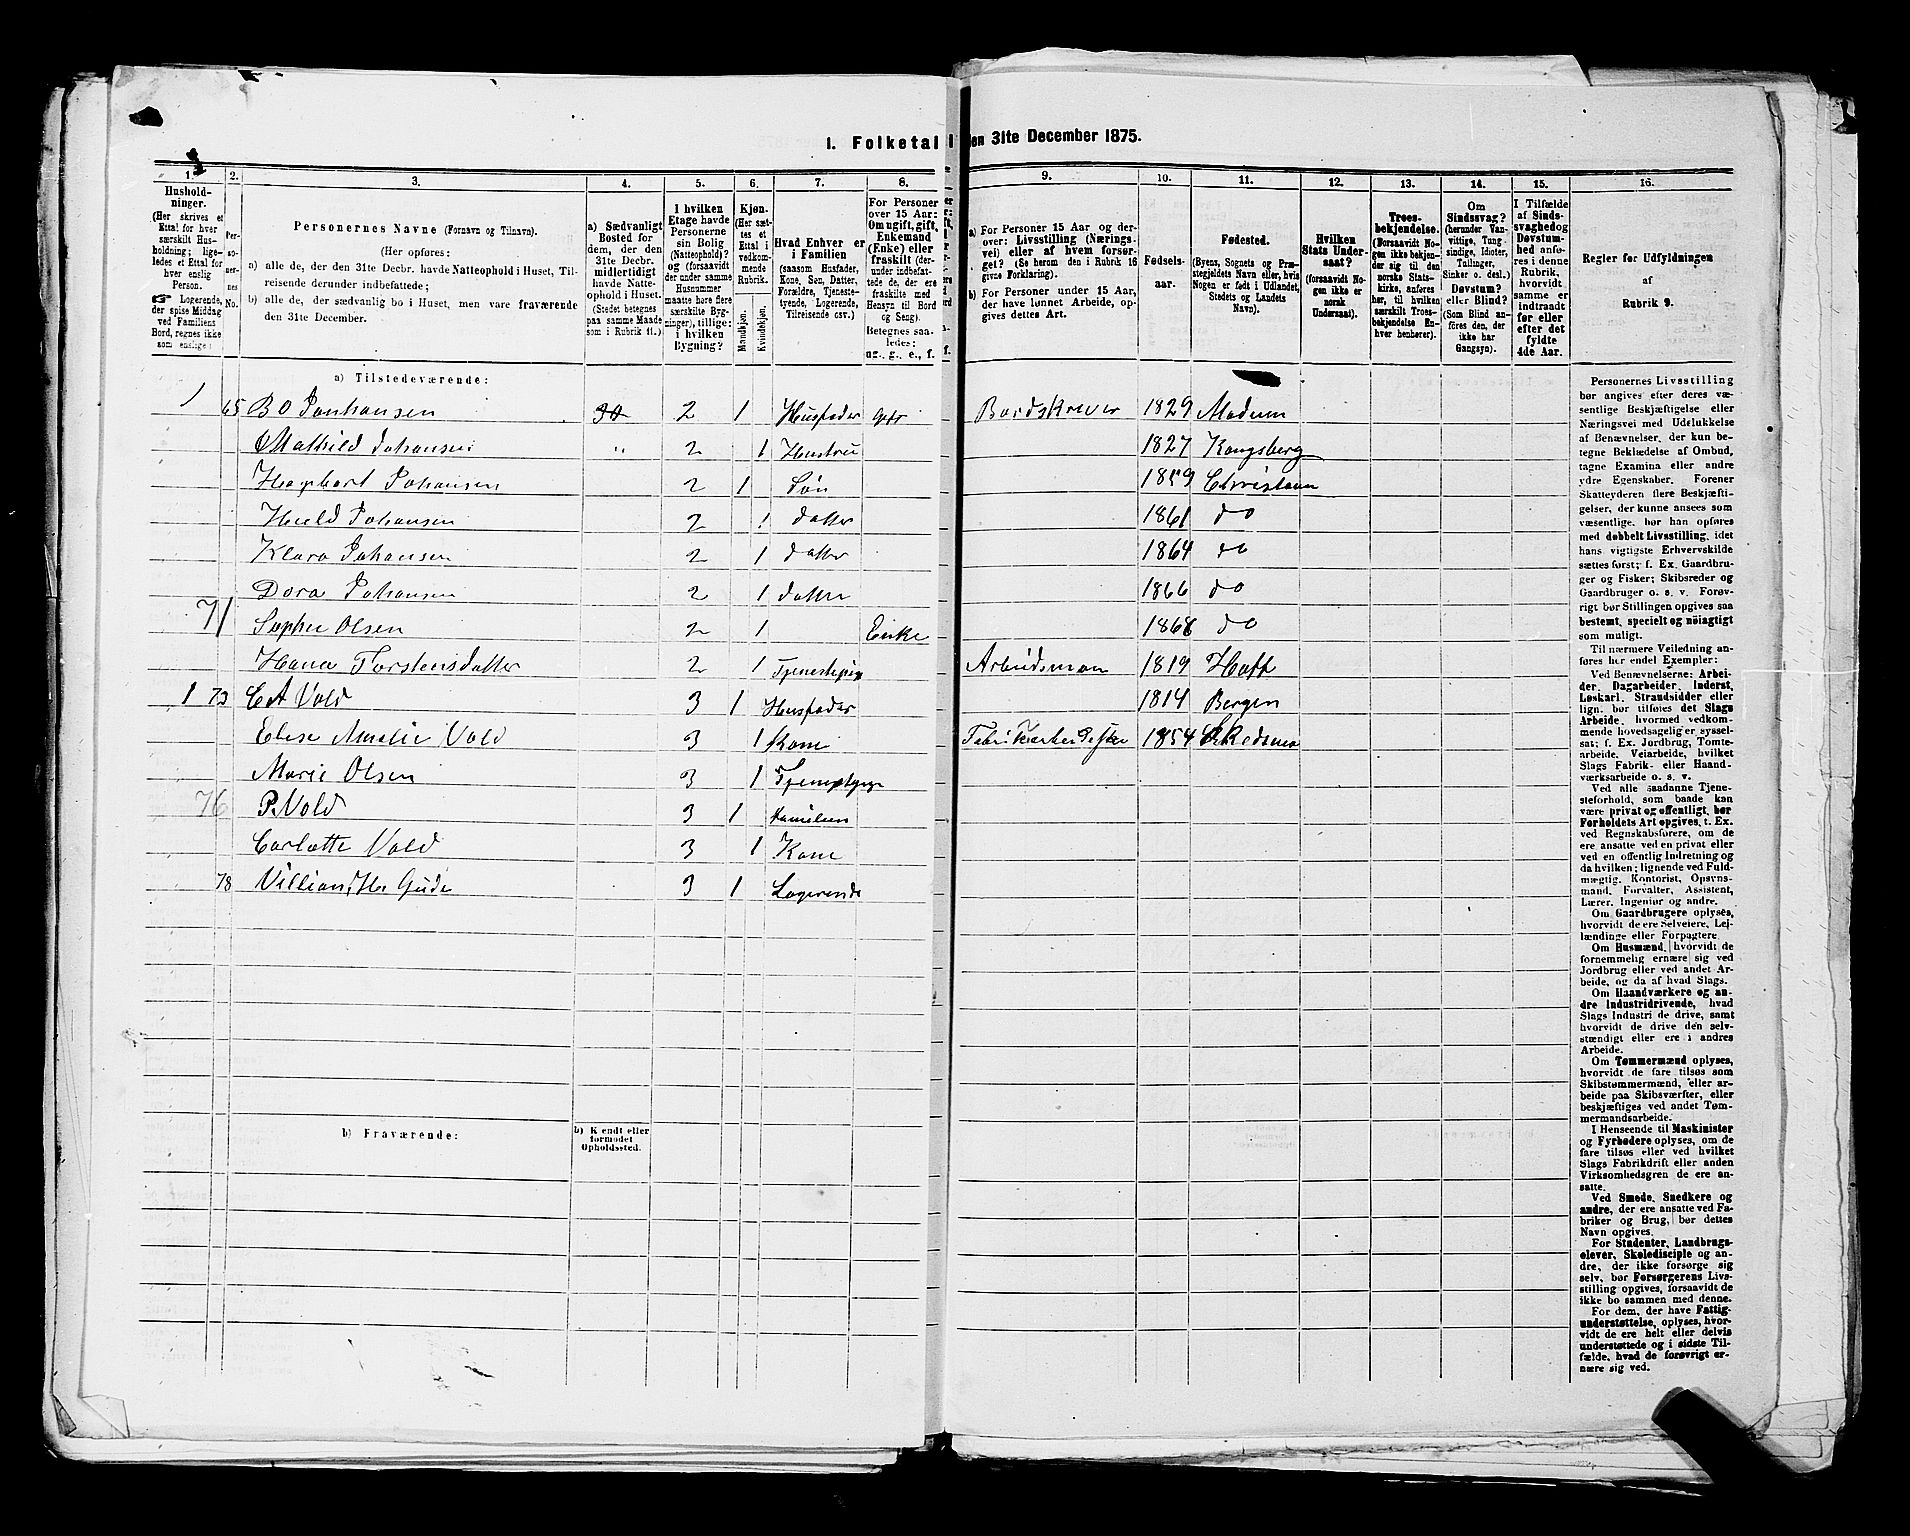 I. Folketal den 31te December 1875.
1. 2. 3. 4. 5. 6. 7. 8. 9. 10. 11. 12. 13. 14. 15. 16.
Husholdninger.
(Her skrives et Ettal for hver særskilt Husholdning; ligeledes et Ettal for hver enslig Person.
☞ Logerende, der spise Middag ved Familiens Bord, regnes ikke som enslige.)
Personernes No.
Personernes Navne (Fornavn og Tilnavn).
(Her opføres:
a) alle de, der den 31te Decbr. havde Natteophold i Huset, Tilreisende derunder indbefattede;
b) alle de, der sædvanlig bo i Huset, men vare fraværende den 31te December.
a) Sædvanligt Bosted for dem, der den 31te Decbr. midlertidigt havde Natteophold i Huset. (Stedet betegnes paa samme Maade som i Rubrik 11.)
I hvilken Etage havde Personerne sin Bolig (Natteophold)? og (forsaavidt der under samme Husnummer maatte høre flere særskilte Bygninger), tillige: i hvilken Bygning?
Kjøn.
(Her sættes et Ettal i vedkommende Rubrik.
Mandkjøn.
Kvindekjøn.
Hvad Enhver er i Familien
(saasom Husfader, Kone, Søn, Datter, Forældre, Tjenestetyende, Logerende, Tilreisende osv.)
For Personer over 15 Aar: Om ugift, gift, Enkemand (Enke) eller fraskilt (derunder indbefattede de, der ere fraskilte med Hensyn til Bord og Seng).
Betegnes saaledes: ug., g., e., f.
a) For Personer 15 Aar og derover: Livsstilling (Næringsvei) eller af hvem forsørget? (Se herom den i Rubrik 16 givne Forklaring).
b) For Personer under 15 Aar, der have lønnet Arbeide, opgives dettes Art.
Fødselsaar.
Fødested.
(Byens, Sognets og Præstegjeldets Navn eller, hvis Nogen er født i Udlandet, Stedets og Landets Navn).
Hvilken Stats Undersaat?
(forsaavidt Nogen ikke er norsk Undersaat).
Troesbekjendelse.
(Forsaavidt Nogen ikke bekjender sig til den norske Statskirke, anføres her, til hvilken særskilt Troesbekjendelse Enhver henhører).
Om Sindssvag? (herunder Vanvittige, Tungsindige, Idioter, Tullinger, Sinker o. desl.) Døvstum? eller Blind? (Som Blind anføres den, der ikke har Gangsyn).
I Tilfælde af Sindssvaghed og Døvstumhed anføres i denne Rubrik, hvorvidt samme er indtraadt før eller efter det fyldte 4de Aar.
Regler for Udfyldningen af Rubrik 9.
a) Tilstedeværende:
1 65 B O Johansen 2 1 Husfader gift Bordskriver 1829 Modum
Mathild Johansen " 2 1 Hustru 1827 Kongsberg
Hagbart Johansen 2 1 Søn 1859 Christiania
Huld Johansen 2 1 datter 1861 do
Klara Johansen 2 1 datter 1864 do
Dora Johansen 2 1 datter 1866 do
71 Sophie Olsen 2 1 Enke 1868 do
Hana Torstensdatter 2 1 Arbeidsman 1819
1 73 C A Vold 3 1 Husfader 1814 Bergen
Elise Amalie Vold 3 1 Kone 1854
Marie Olsen 3 1
76 P. Vold 3 1 Familien
Carlotte Vold 3 1 Kone
78 Gude 3 1 Logerende
b) Fraværende:
b) Kjendt eller formodet Opholdssted.
Personernes Livsstilling
bør angives efter deres væ-
sentlige Beskjæftigelse eller
Næringsvei med Udelukkelse
af Benævnelser, der kun be-
tegne Beklædelse af Ombud,
tagne Examina eller andre
ydre Egenskaber. Forener
Skatteyderen flere Beskjæfti-
gelser, der kunne ansees som
væsentlige, bør han opføres
med dobbelt Livsstilling, idet
hans vigtigste Erhvervskilde
sættes først; f. Ex. Gaardbru-
ger og Fisker; Skibsreder og
Gaardbruger o. s. v. Forøv-
rigt bør Stillingen opgives saa
bestemt, specielt og nøiagtigt
som muligt.
Til nærmere Veiledning an-
føres her endel Exempler:
Ved Benævnelserne: Arbei-
der, Dagarbeider, Inderst,
Løskarl, Strandsidder eller
lign. bør tilføies det Slags
Arbeide, hvormed vedkom-
mende hovedsagelig er syssel-
sat; f. Ex. Jordbrug, Tomte-
arbeide, Veiarbeide, hvilket
Slags Fabrik- eller Haand-
værksarbeide o. s. v.
Ved alle saadanne Tjene-
steforhold, som baade kan
være privat og offentligt, bør
Forholdets Art opgives, t. Ex.
ved Regnskabsførere, om de
ere ansatte ved en privat eller
ved en offentlig Indretning og
da hvilken; lignende ved Fuld-
mægtig, Kontorist, Opsyns-
mand, Forvalter, Assistent,
Lærer, Ingeniør og andre.
Om Gaardbrugere oplyses,
hvorvidt de ere Selveiere, Lei-
lændinge eller Forpagtere.
Om Husmænd, hvorvidt de
fornemmelig ernære sig ved
Jordbrug eller ved andet Ar-
beide, og da af hvad Slags.
Om Haandværkere og an-
dre Industridrivende, hvad
Slags Industri de drive, samt
hvorvidt de drive den selv-
stændigt eller ere i andres
Arbeide.
Om Tømmermænd oplyses,
hvorvidt de fare tilsøs som
Skibstømmermænd, eller ar-
beide paa Skibsværfter, eller
beskjæftiges ved andet Tøm-
mermandsarbeide.
I Henseende til Maskinister
og Fyrbødere oplyses, om de
fare tilsøs eller ved hvilket
Slags Fabrikdrift eller anden
Virksomhedsgren de ere an-
satte.
Ved Smede, Snedkere og
andre, der ere ansatte ved Fa-
briker og Brug, bør dettes
Navn opgives.
For Studenter, Landbrugs-
elever, Skoledisciple og an-
dre, der ikke forsørge sig
selv, bør Forsørgerens Livs-
stilling opgives, forsaavidt de
ikke bo sammen med denne.
For dem, der have Fattig-
understøttelse, oplyses, hvor-
vidt de ere helt eller delvis
understøttede og i sidste Til-
fælde, hvad de forøvrigt er-
nære sig ved.